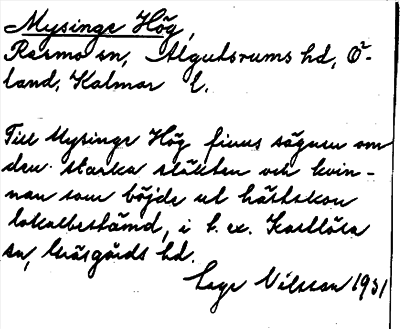 Mysinge Hög,
Resmo sn, Algutsrums hd, Ö-
land, Kalmar l.
Till Mysinge Hög finns sägnen om
den starka släkten och kvin-
nan som böjde ut hästskon
lokalbestämd, i t. ex. Karllösa
sn, Gräsgårds hd.
Lage Nilsson 1931